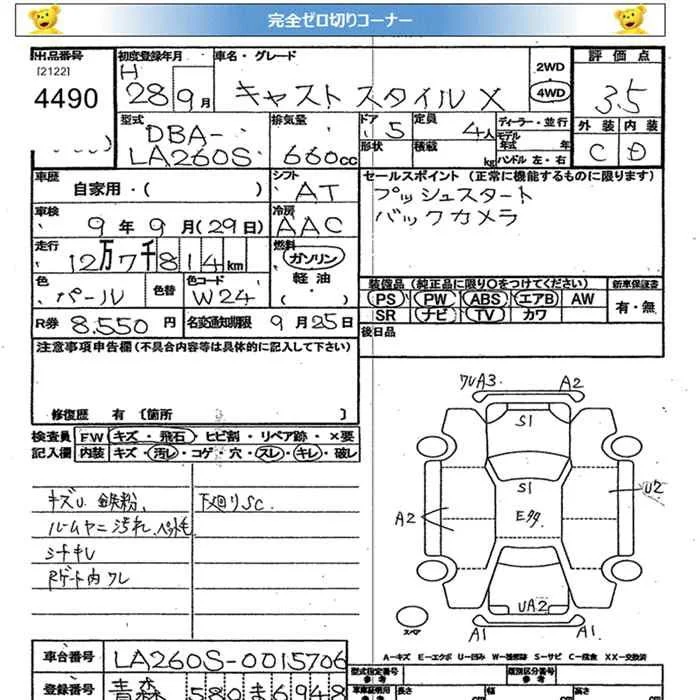 完全ゼロ切りコーナー
出品番号
[2122]
4490
初度登録年月
H
28 9月
車名・グレード
キャスト スタイル X
2WD
4WD
評価点
3.5
外装 内装
C D
型式
DBA-
LA260S
排気量
660cc
ドア 5
形状
定員 4人
積載 kg
ディーラー・並行
モデル
年式 年
ハンドル 左・右
車歴
自家用・( )
シフト
AT
車検
9年 9月(29日)
冷房
AAC
走行
12万7千814km
燃料
ガソリン
軽油
・( )
色
パール
色替
色コード
W24
R券 8.550円
名変通知期限 9月25日
セールスポイント (正常に機能するものに限ります)
プッシュスタート
バックカメラ
装備品 (純正品に限り○をつけてください)
PS PW ABS エアB AW
SR ナビ TV カワ
新車保証書
有・無
後日品
注意事項申告欄 (不具合内容等は具体的に記入して下さい)
修復歴 有 [箇所 ]
検査員
記入欄
FW キズ・飛石・ヒビ割・リペア跡・×要
内装 キズ・汚レ・コゲ・穴・スレ・キレ・破レ
キズU. 鉄粉.
下廻りSC.
ルームヤニ汚れ.ペット毛
シートキレ
Rゲート内ワレ
ワレA3
A2
S1
S1
U2
A2
Eタタ
UA2
A1
A1
スペア
A－キズ E－エクボ U－凹み W－補修跡 S－サビ C－腐食 XX－交換済
車台番号 LA260S-0015706
登録番号 青森 580 ま 6948
型式指定番号
参考
類別区分番号
参考
車庫証明用
参考
長さ
cm
幅
cm
高さ
cm